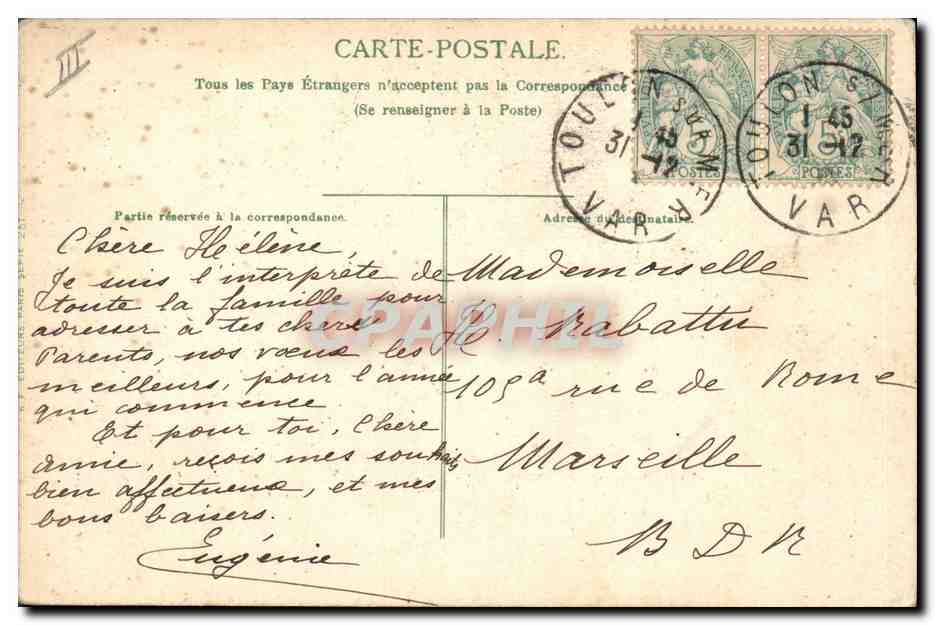 III
CARTE-POSTALE.
Tous les Pays Étrangers n'acceptent pas la Correspondance
(Se renseigner à la Poste)
TOULON SUR MER
1 45
31 -12
VAR
5
POSTES
TOULON
1 45
31 -12
VAR
5
POSTES
Partie réservée à la correspondance.
Adresse du destinataire.
Chère Hélène,
Je suis l'interprète de
toute la famille pour
adresser à tes chers
Parents, nos vœux les
meilleurs, pour l'année
qui commence
Et pour toi, Chère
amie, reçois mes souhaits
bien affectueux, et mes
bons baisers.
Eugénie
Mademoiselle
H. Rabattu
105a rue de Rome
Marseille
B D R
CPAPHIL